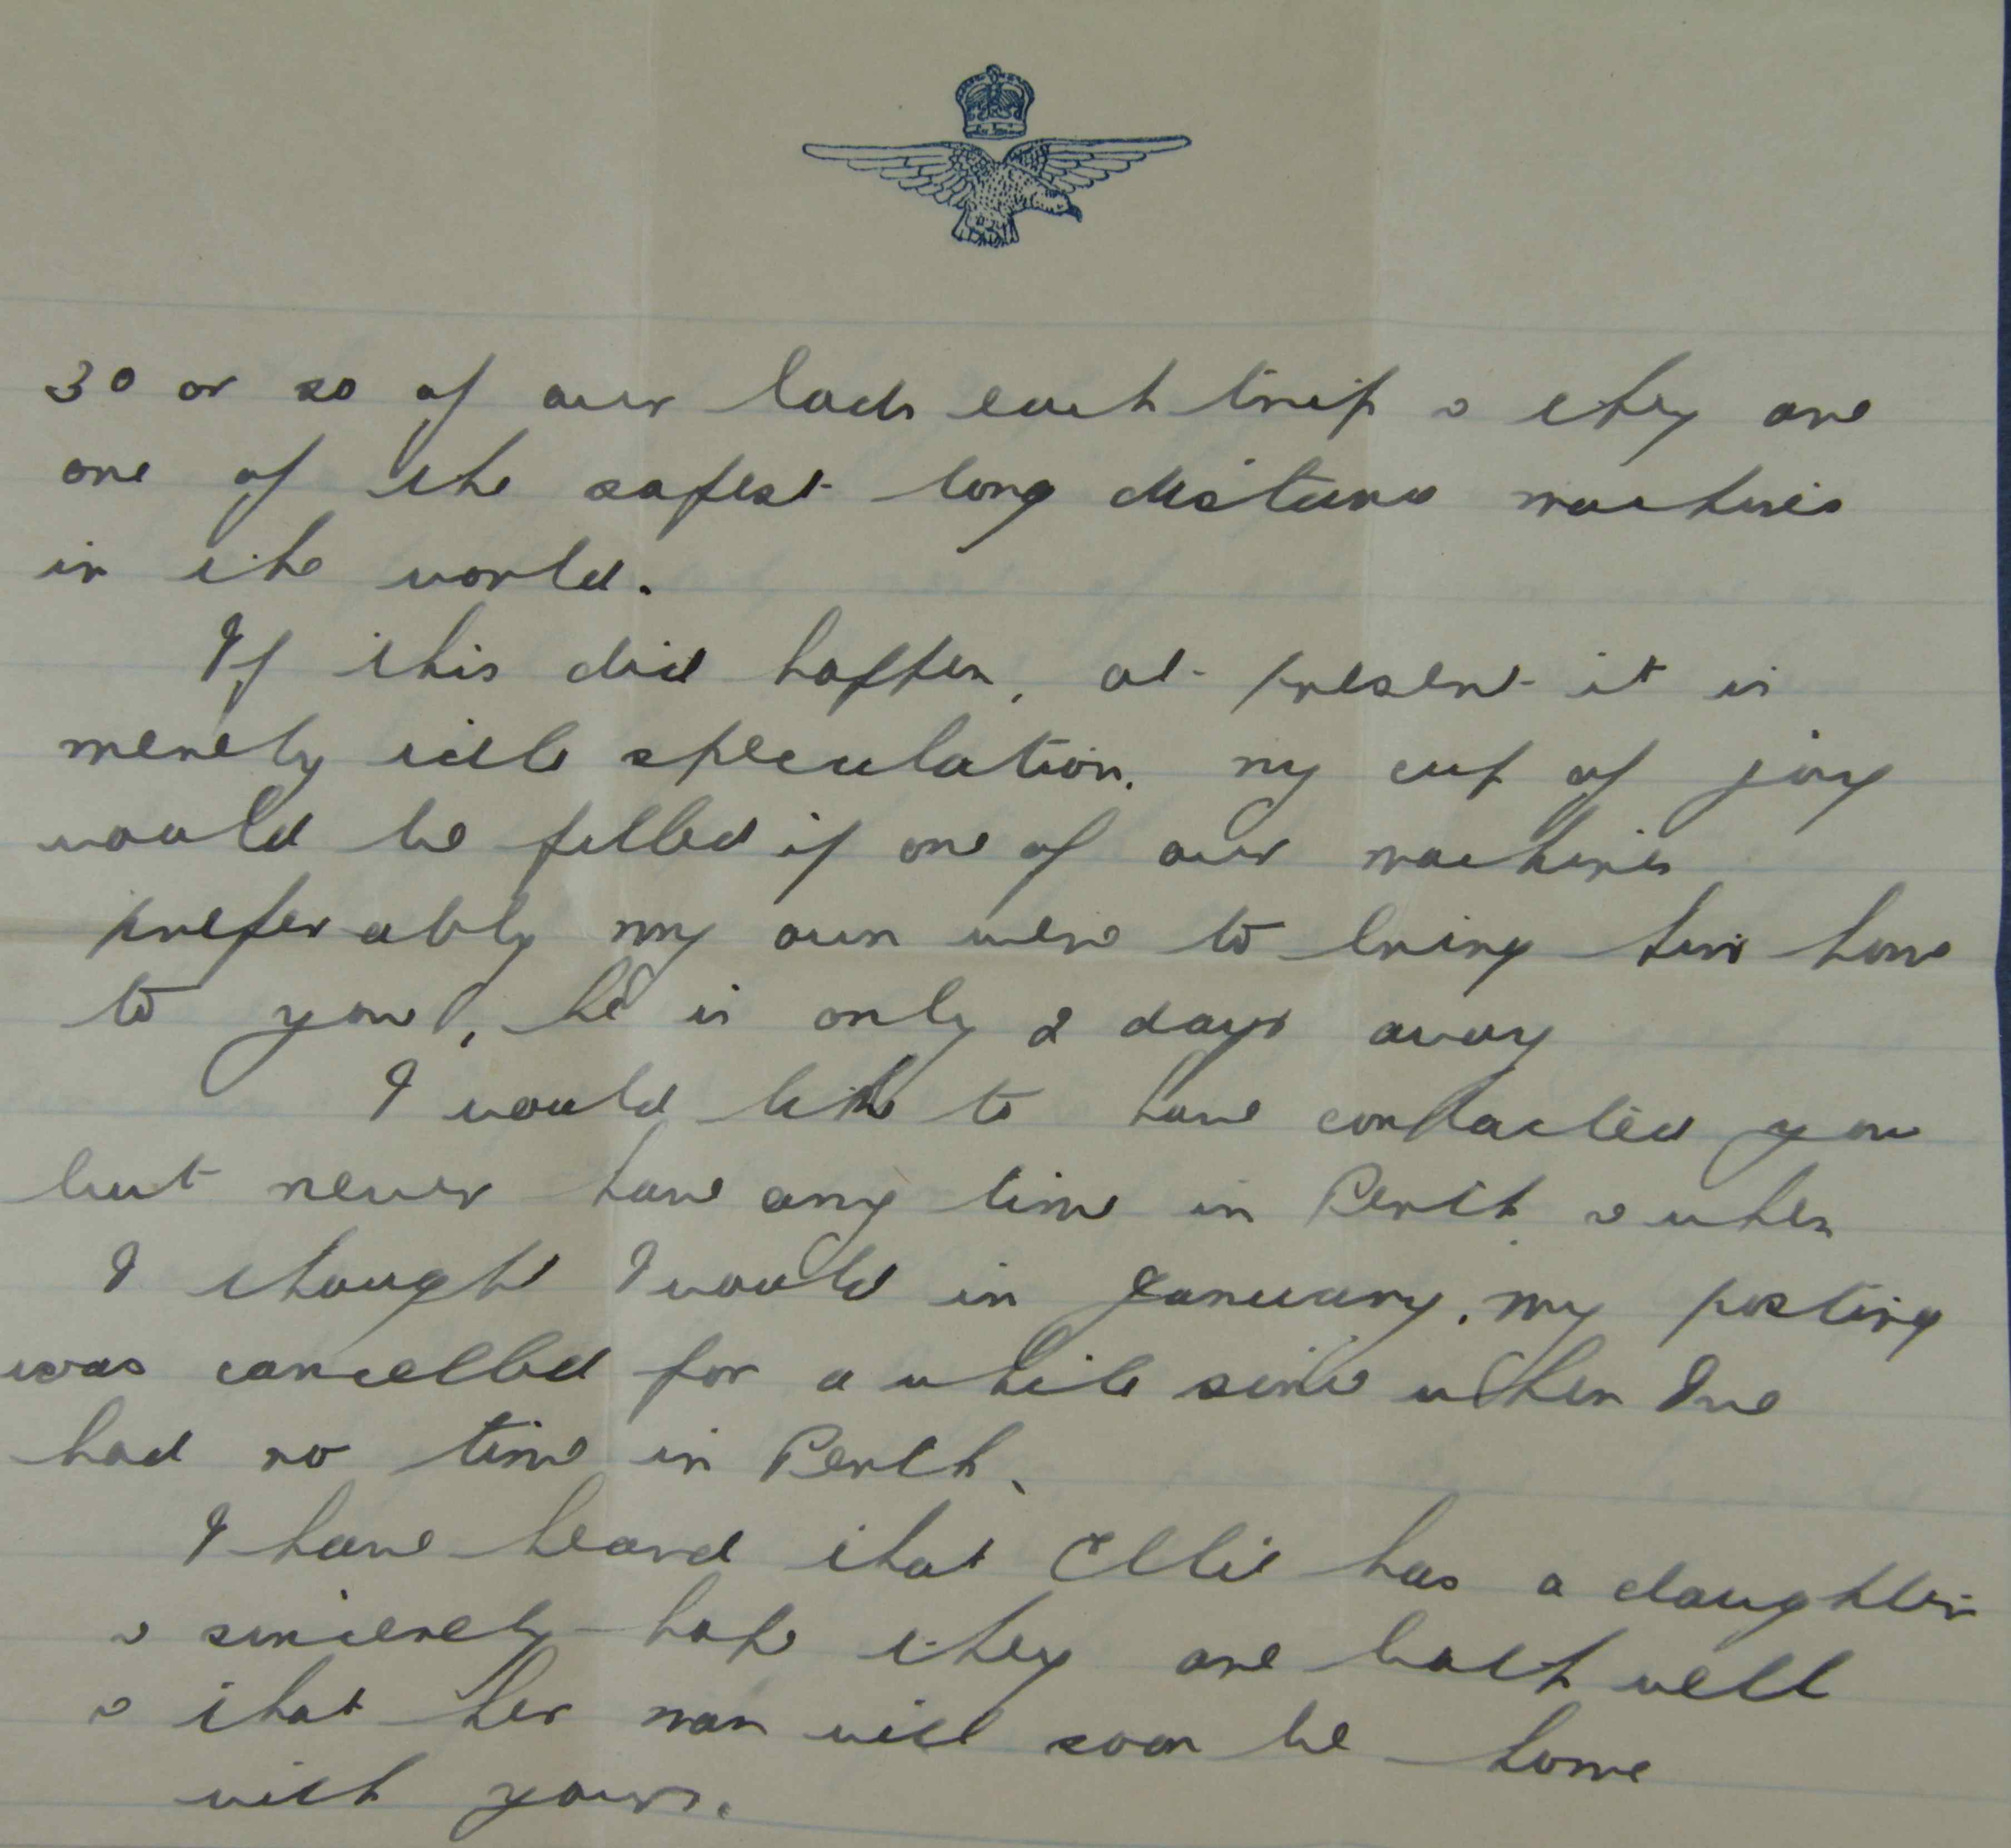 30 or so of our lads each trip & they are
one of the safest long distance machines
in the world.
If this did happen, at present it is
merely idle speculation, my cup of joy
would be filled if one of our machines
preferably my own were to bring him home
to you, he is only 2 days away
I would like to have contacted you
but never have any time in Perth & when
I thought I would in January, my posting
was cancelled for a while since when I've
had no time in Perth.
I have heard that Ellie has a daughter
& sincerely hope they are both well
& that her man will soon be home
with yours.